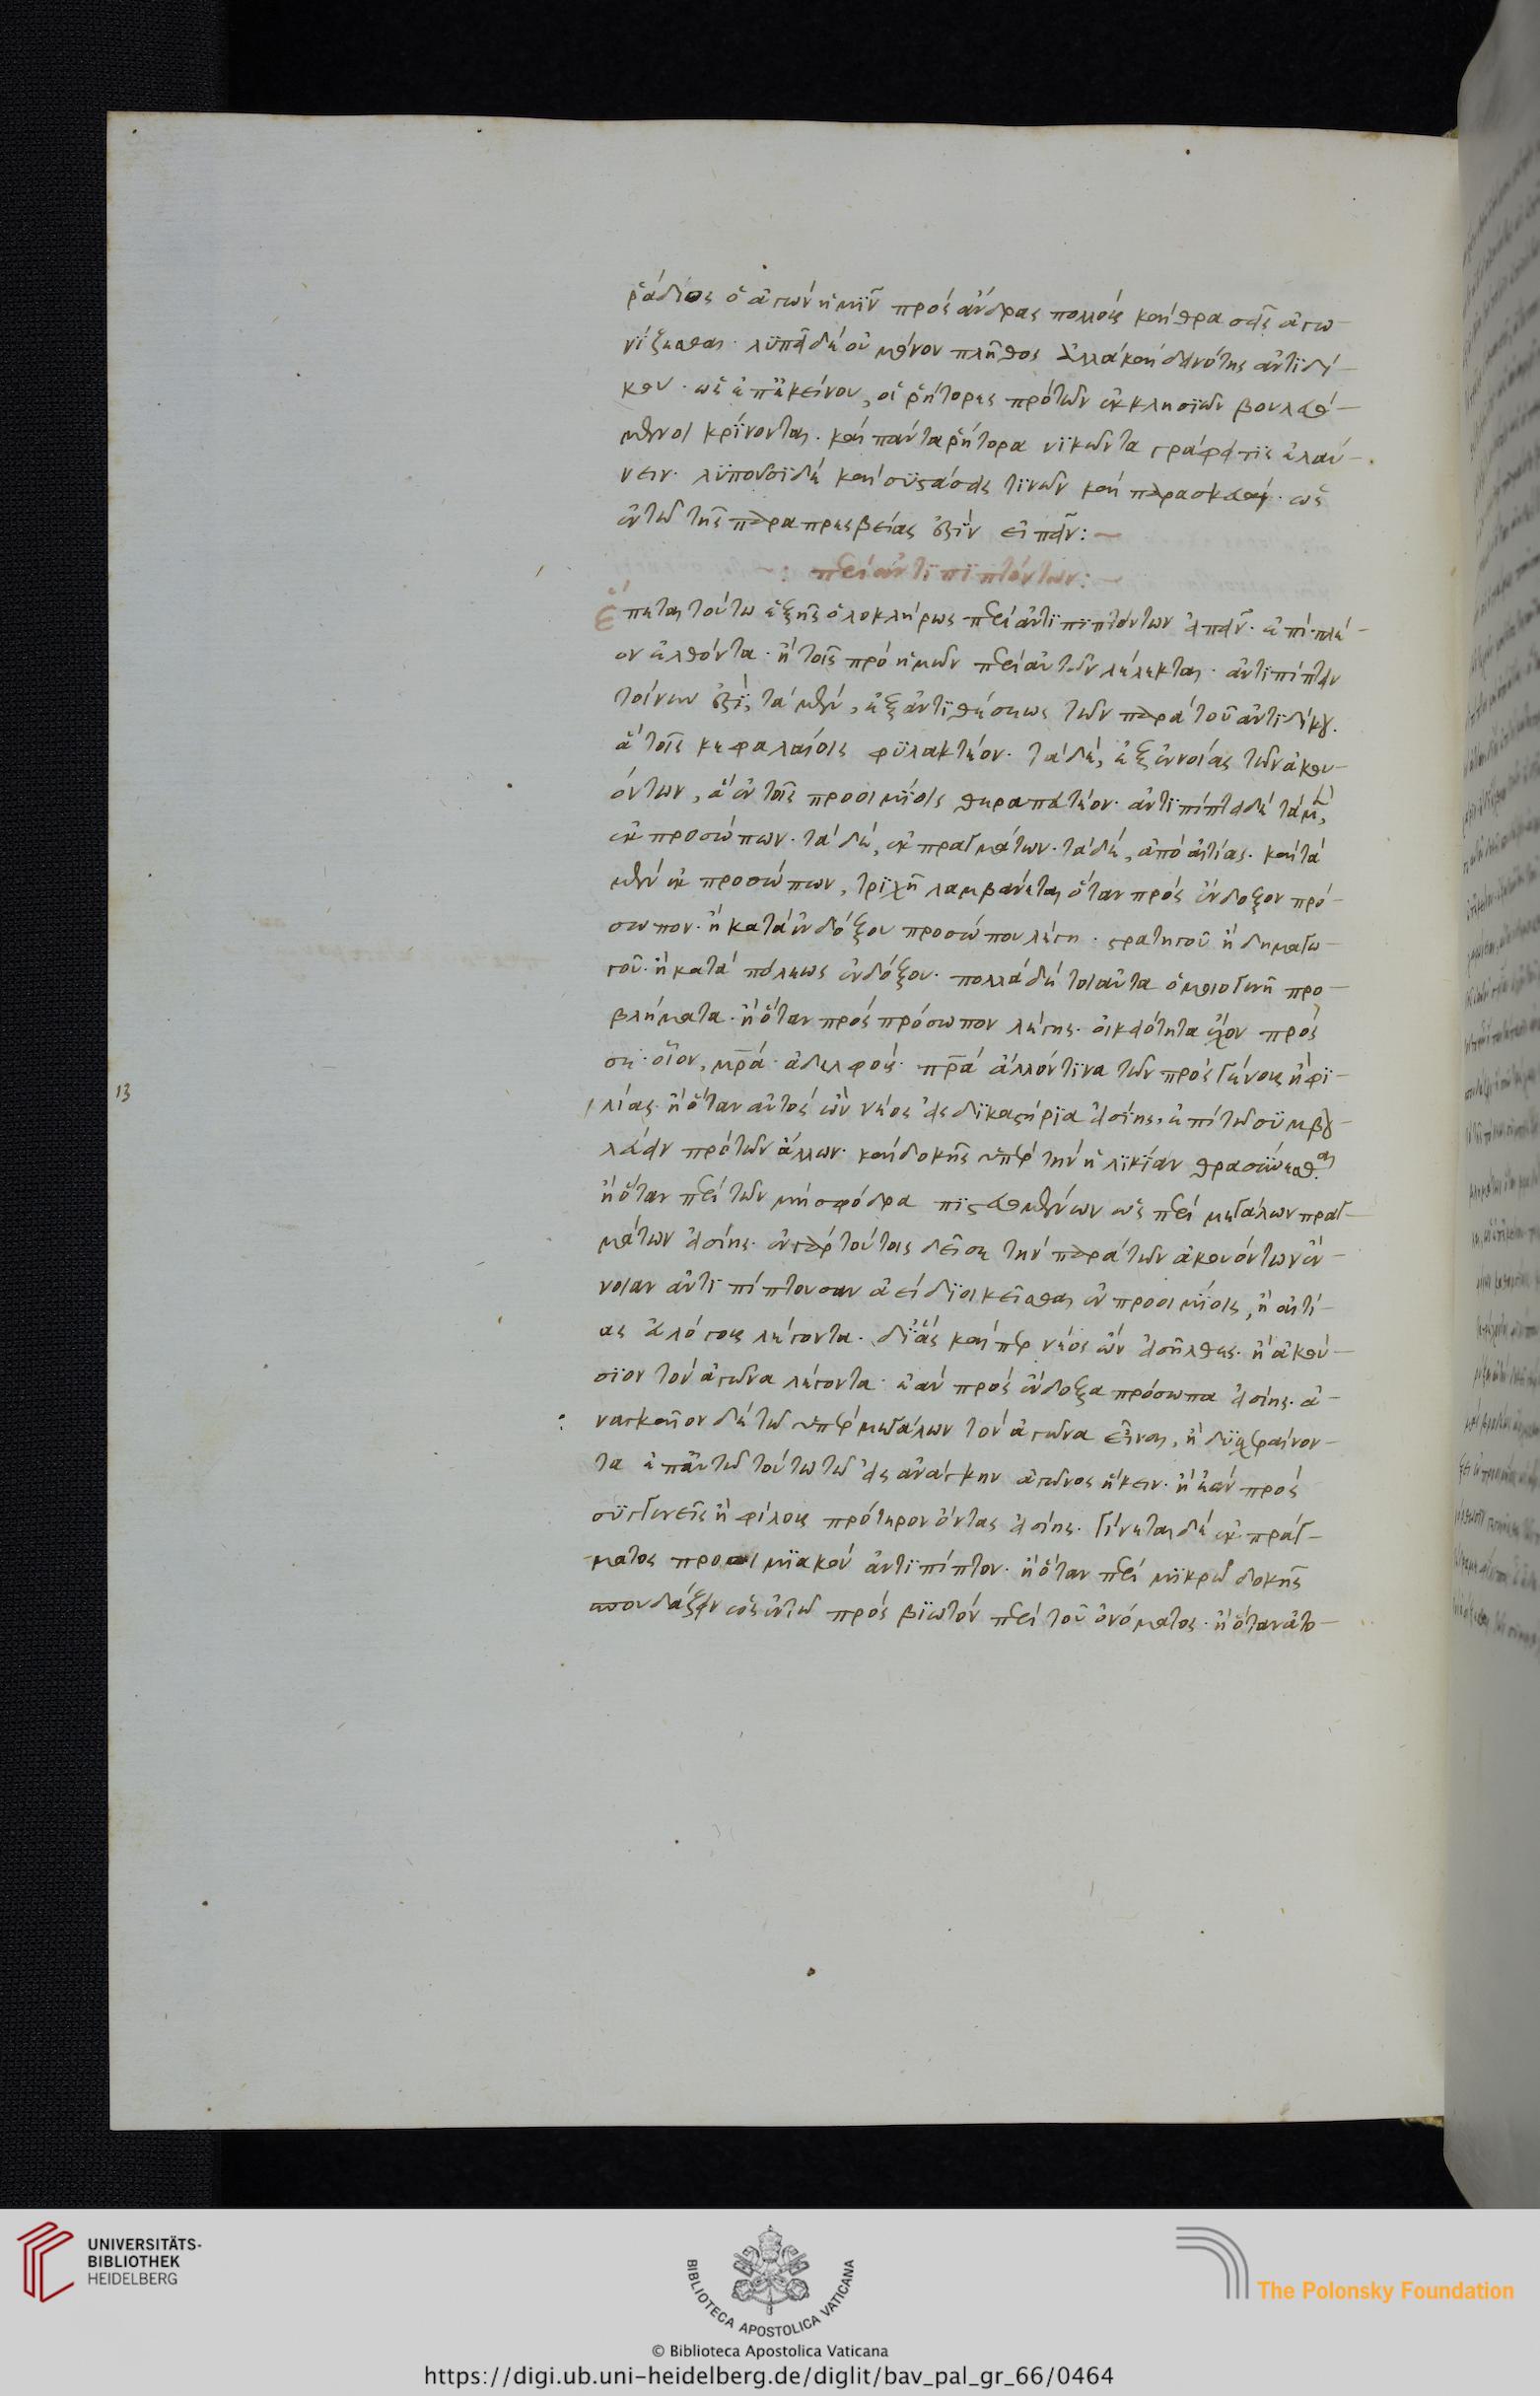 ῥάδιος ὁ ἀγὼν ἡμῖν πρὸς ἄνδρας πολλοὺς καὶ θρασεῖς ἀγω-
νίζεσθαι. λυπεῖ δὲ οὐ μόνον πλῆθος ἀλλὰ καὶ δεινότης ἀντιδί-
κου. ὡς ἐπ' ἐκείνου, οἱ ῥήτορες πρὸ τῶν ἐκκλησιῶν βουλευό-
μενοι κρίνονται. καὶ πάντα ῥήτορα νικῶντα γράφει τις ἐλαύ-
νειν. λυποῦσι δὲ καὶ συστάσεις τινῶν καὶ παρασκευαί. ὡς
ἐν τῷ τῆς παραπρεσβείας ἐστὶν εἰπεῖν:
περὶ ἀντιπιπτόντων:
Ἕπεται τούτω ἑξῆς ὁλοκλήρως περὶ ἀντιπιπτόντων εἰπεῖν. ἐπὶ πλέ-
ον ἐλθόντα. ἢ τοῖς πρὸ ἡμῶν περὶ αὐτῶν λέλεκται. ἀντιπίπτειν
τοίνυν ἐστὶ, τὰ μὲν, ἐξ ἀντιθέσεως τῶν παρὰ τοῦ ἀντιδίκου.
ἃ τοῖς κεφαλαίοις φυλακτέον. τὰ δὲ, ἐξ ἐννοίας τῶν ἀκου-
όντων, ἃ ἐν τοῖς προοιμίοις θεραπευτέον. ἀντιπίπτει δὲ τὰ μὲν,
ἐκ προσώπων. τὰ δὲ, ἐκ πραγμάτων. τὰ δὲ, ἀπὸ αἰτίας. καὶ τὰ
μὲν ἐκ προσώπων, τριχῆ λαμβάνεται ὅταν πρὸς ἔνδοξον πρό-
σωπον. ἢ κατὰ ἐνδόξου προσώπου λέγη. στρατηγοῦ ἢ δημαγω-
γοῦ. ἢ κατὰ πόλεως ἐνδόξου. πολλὰ δὲ τοιαῦτα ὁμοιογενῆ προ-
βλήματα. ἢ ὅταν πρὸς πρόσωπον λέγης. οἰκειότητα ἔχον πρός
σε. οἷον, μρά. ἀδελφούς. πρά ἄλλον τινα τῶν πρὸς γένους ἢ φι-
λίας. ἢ ὅταν αὐτὸς ὢν νέος εἰς δικαστήρια εἰσίης. ἐπὶ τῷ συμβου-
λεύειν πρὸ τῶν ἄλλων. καὶ δοκῆς ὑπὲρ τὴν ἡλικίαν θρασύνεσθαι
ἢ ὅταν περὶ τῶν μὴ σφόδρα πιστευομένων ὡς περὶ μεγάλων πραγ-
μάτων εἰσίης. ἐν γὰρ τούτοις δεῖ σε τὴν παρὰ τῶν ἀκουόντων ἔν-
νοιαν ἀντιπίπτουσαν ἀεὶ διοικεῖσθαι ἐν προοιμίοις, ἢ αἰτί-
ας εὐλόγους λέγοντα. δι' ἃς καίπερ νέος ὢν εἰσῆλθες. ἢ ἀκού-
σιον τὸν ἀγῶνα λέγοντα. ἐὰν πρὸς ἔνδοξα πρόσωπα εἰσίης. ἀ-
ναγκαῖον δὲ τῷ ὑπὲρ μεγάλων τὸν ἀγῶνα εἶναι, ἢ δυσχεραίνον-
τα ἐπ' αὐτῷ τούτω τῷ εἰς ἀνάγκην ἀγῶνος ἥκειν. ἢ ἐὰν πρὸς
συγγενεῖς ἢ φίλους πρότερον ὄντας εἰσίης. γίνεται δὲ ἐκ πράγ-
ματος προοιμιακὸν ἀντιπίπτον. ἢ ὅταν περὶ μικρῶν δοκῆς
σπουδάζειν ὡς ἐν τῷ πρὸς βιωτὸν περὶ τοῦ ὀνόματος. ἢ ὅταν ἄτο-
13
UNIVERSITÄTS-
BIBLIOTHEK
HEIDELBERG
BIBLIOTECA APOSTOLICA VATICANA
The Polonsky Foundation
© Biblioteca Apostolica Vaticana
https://digi.ub.uni-heidelberg.de/diglit/bav_pal_gr_66/0464